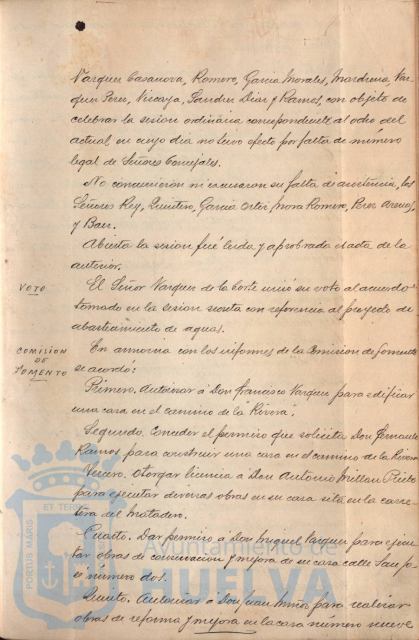 Vazquez Casanova, Romero, Garcia Morales, Mardenia, Vaz-
quez Perez, Vizcaya, Sanchez Diaz y Ramos, con objeto de
celebrar la sesion ordinaria correspondiente al ocho del
actual, en cuyo dia no tuvo efecto por falta de número
legal de Señores Concejales.
No concurrieron ni excusaron su falta de asistencia, los
Señores Rey, Quintero, Garcia Ortiz, Mora Romero, Perez
y Baez.
Abierta la sesion fué leida y aprobada el acta de la
anterior.
VOTO
El Señor Vazquez de la Corte unió su voto al acuerdo
tomado en la sesion secreta con referencia al proyecto de
abastecimiento de aguas.
COMISION
DE
FOMENTO
En armonia con los informes de la Comision de Fomento
se acordó:
Primero. Autorizar á Don Francisco Vazquez para edificar
una casa en el camino de la "Rivera".
Segundo. Conceder el permiso que solicita Don Fernando
Ramos para construir una casa en el camino de la Rivera
Tercero. Otorgar licencia á Don Antonio Millan Prieto
para ejecutar diversas obras en su casa sita en la carre-
tera del Matadero.
Cuarto. Dar permiso á Don Miguel Vazquez para ejecu-
tar obras de conservacion y mejora de su casa calle San Jo-
sé número dos.
Quinto. Autorizar á Don Juan Muñoz para realizar
obras de reforma y mejora en la casa número nueve
PORTUS MARIS ET TERR
Ayuntamiento de
HUELVA